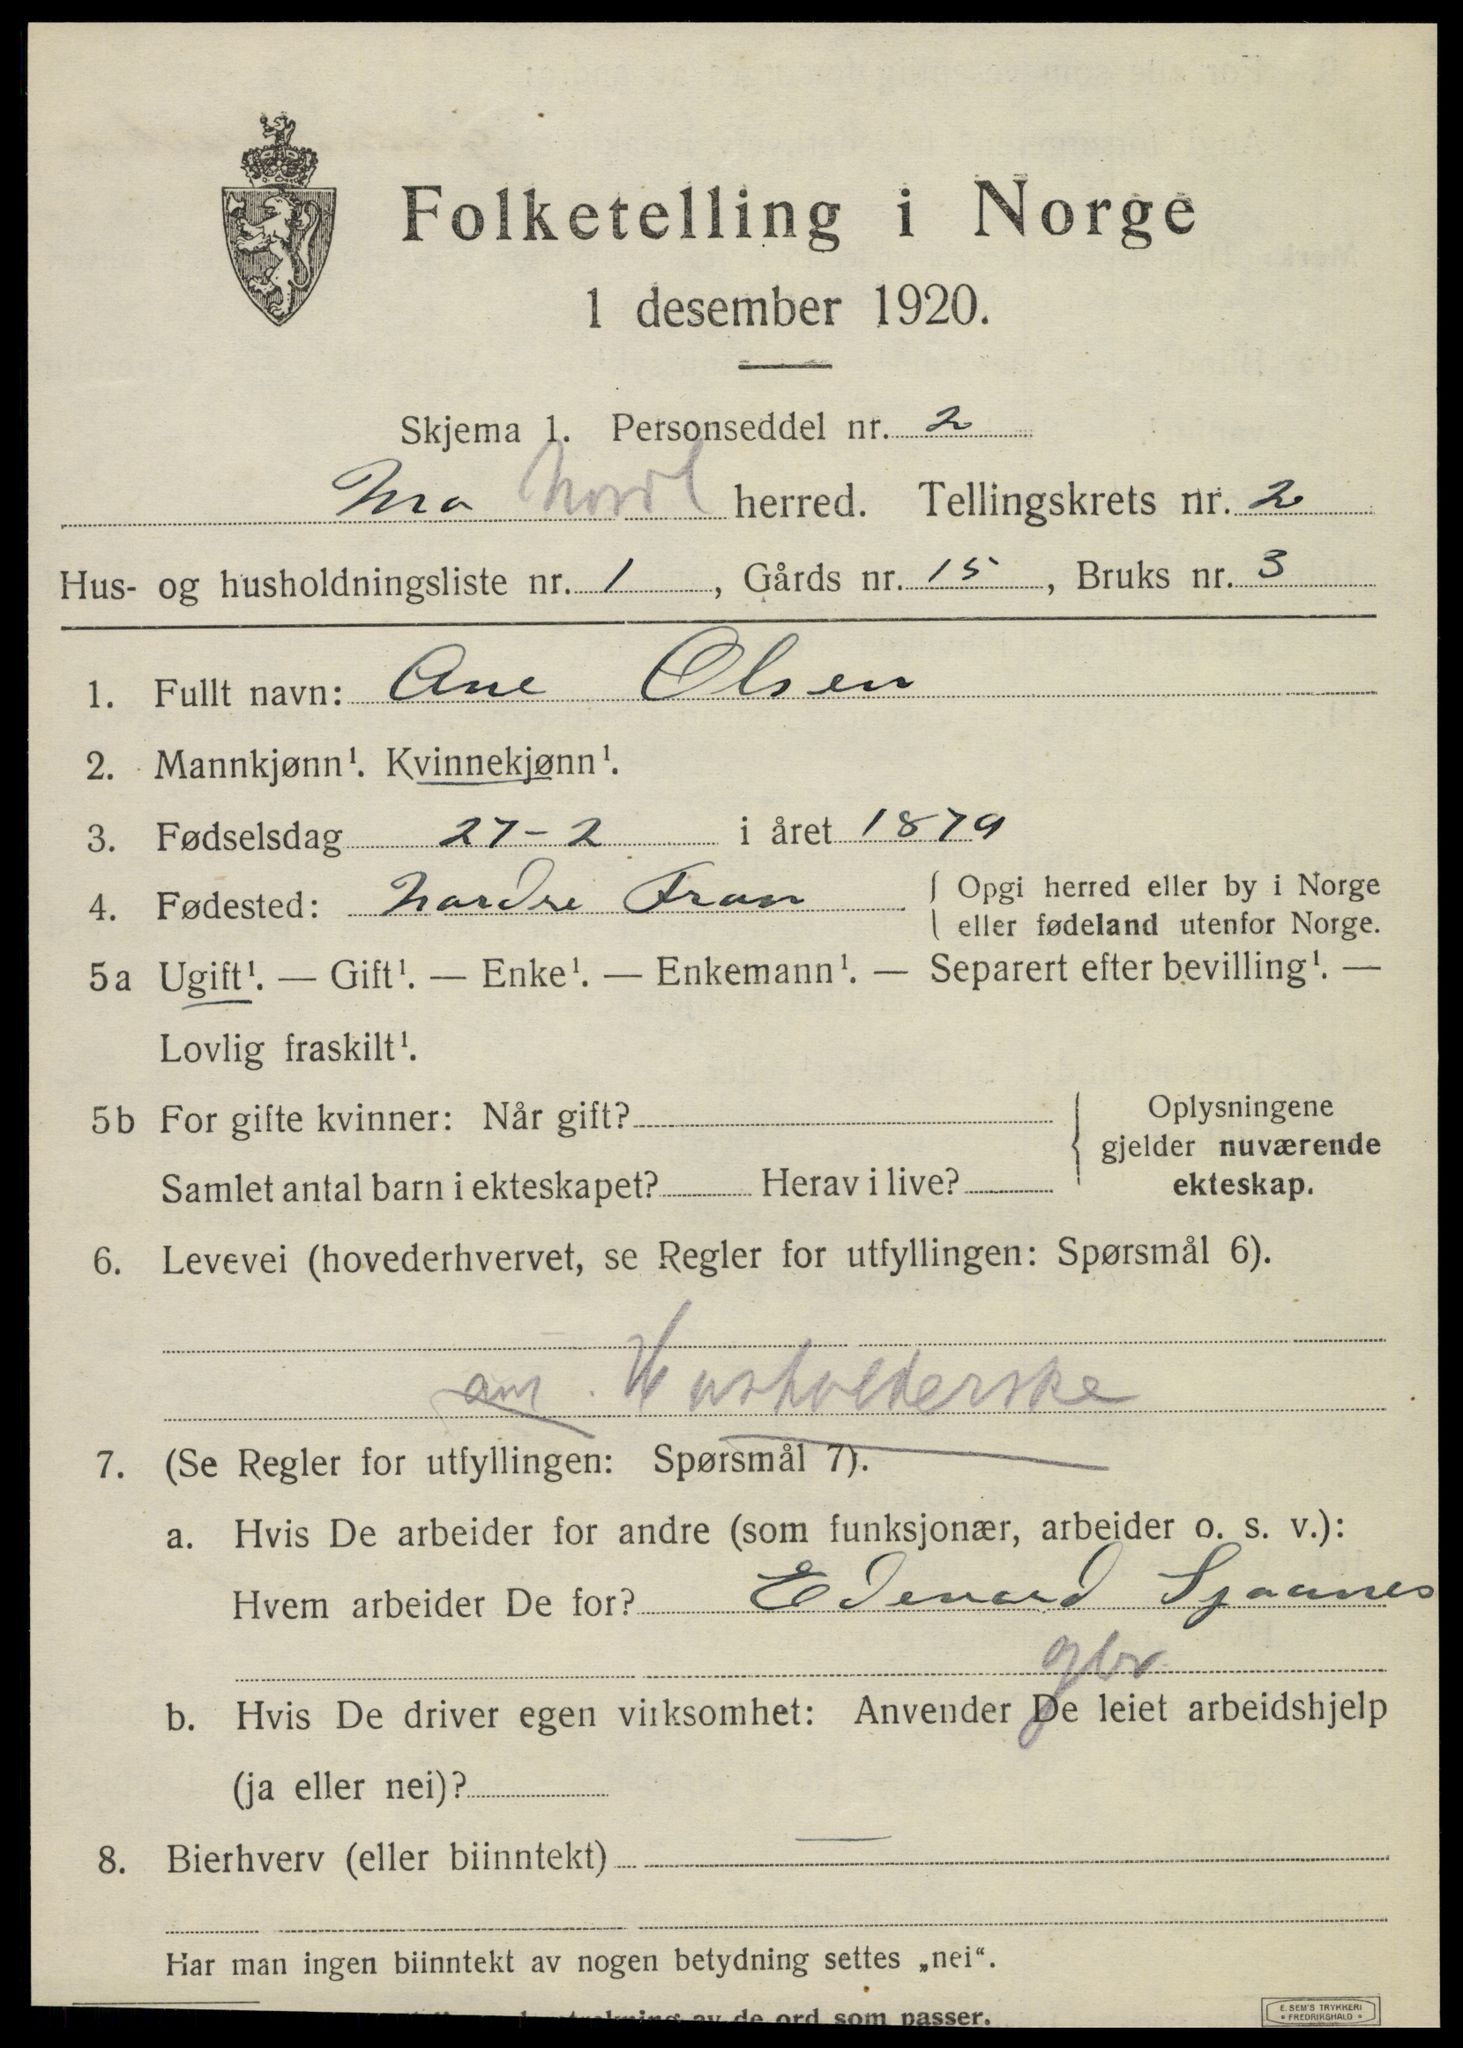 Folketelling i Norge
1 desember 1920.
Skjema 1. Personseddel nr. 2
Mo Nordl herred. Tellingskrets nr. 2
Hus- og husholdningsliste nr. 1, Gårds nr. 15, Bruks nr. 3
1. Fullt navn: Ane Olsen
2. Mannkjønn¹. Kvinnekjønn¹.
3. Fødselsdag 27-2 i året 1879
4. Fødested: Nordre Fron { Opgi herred eller by i Norge
eller fødeland utenfor Norge.
5a Ugift¹. — Gift¹. — Enke¹. — Enkemann¹. — Separert efter bevilling¹. —
Lovlig fraskilt¹.
5b For gifte kvinner: Når gift?
Samlet antal barn i ekteskapet? Herav i live?
Oplysningene
gjelder nuværende
ekteskap.
6. Levevei (hovederhvervet, se Regler for utfyllingen: Spørsmål 6).
Husholderske
7. (Se Regler for utfyllingen: Spørsmål 7).
a. Hvis De arbeider for andre (som funksjonær, arbeider o. s. v.):
Hvem arbeider De for? Edevard Sjaanes
gbr
b. Hvis De driver egen virksomhet: Anvender De leiet arbeidshjelp
(ja eller nei)?
8. Bierhverv (eller biinntekt) —
Har man ingen biinntekt av nogen betydning settes „nei“.
av de ord som passer.
E. SEM'S TRYKKERI
* FREDRIKSHALD *